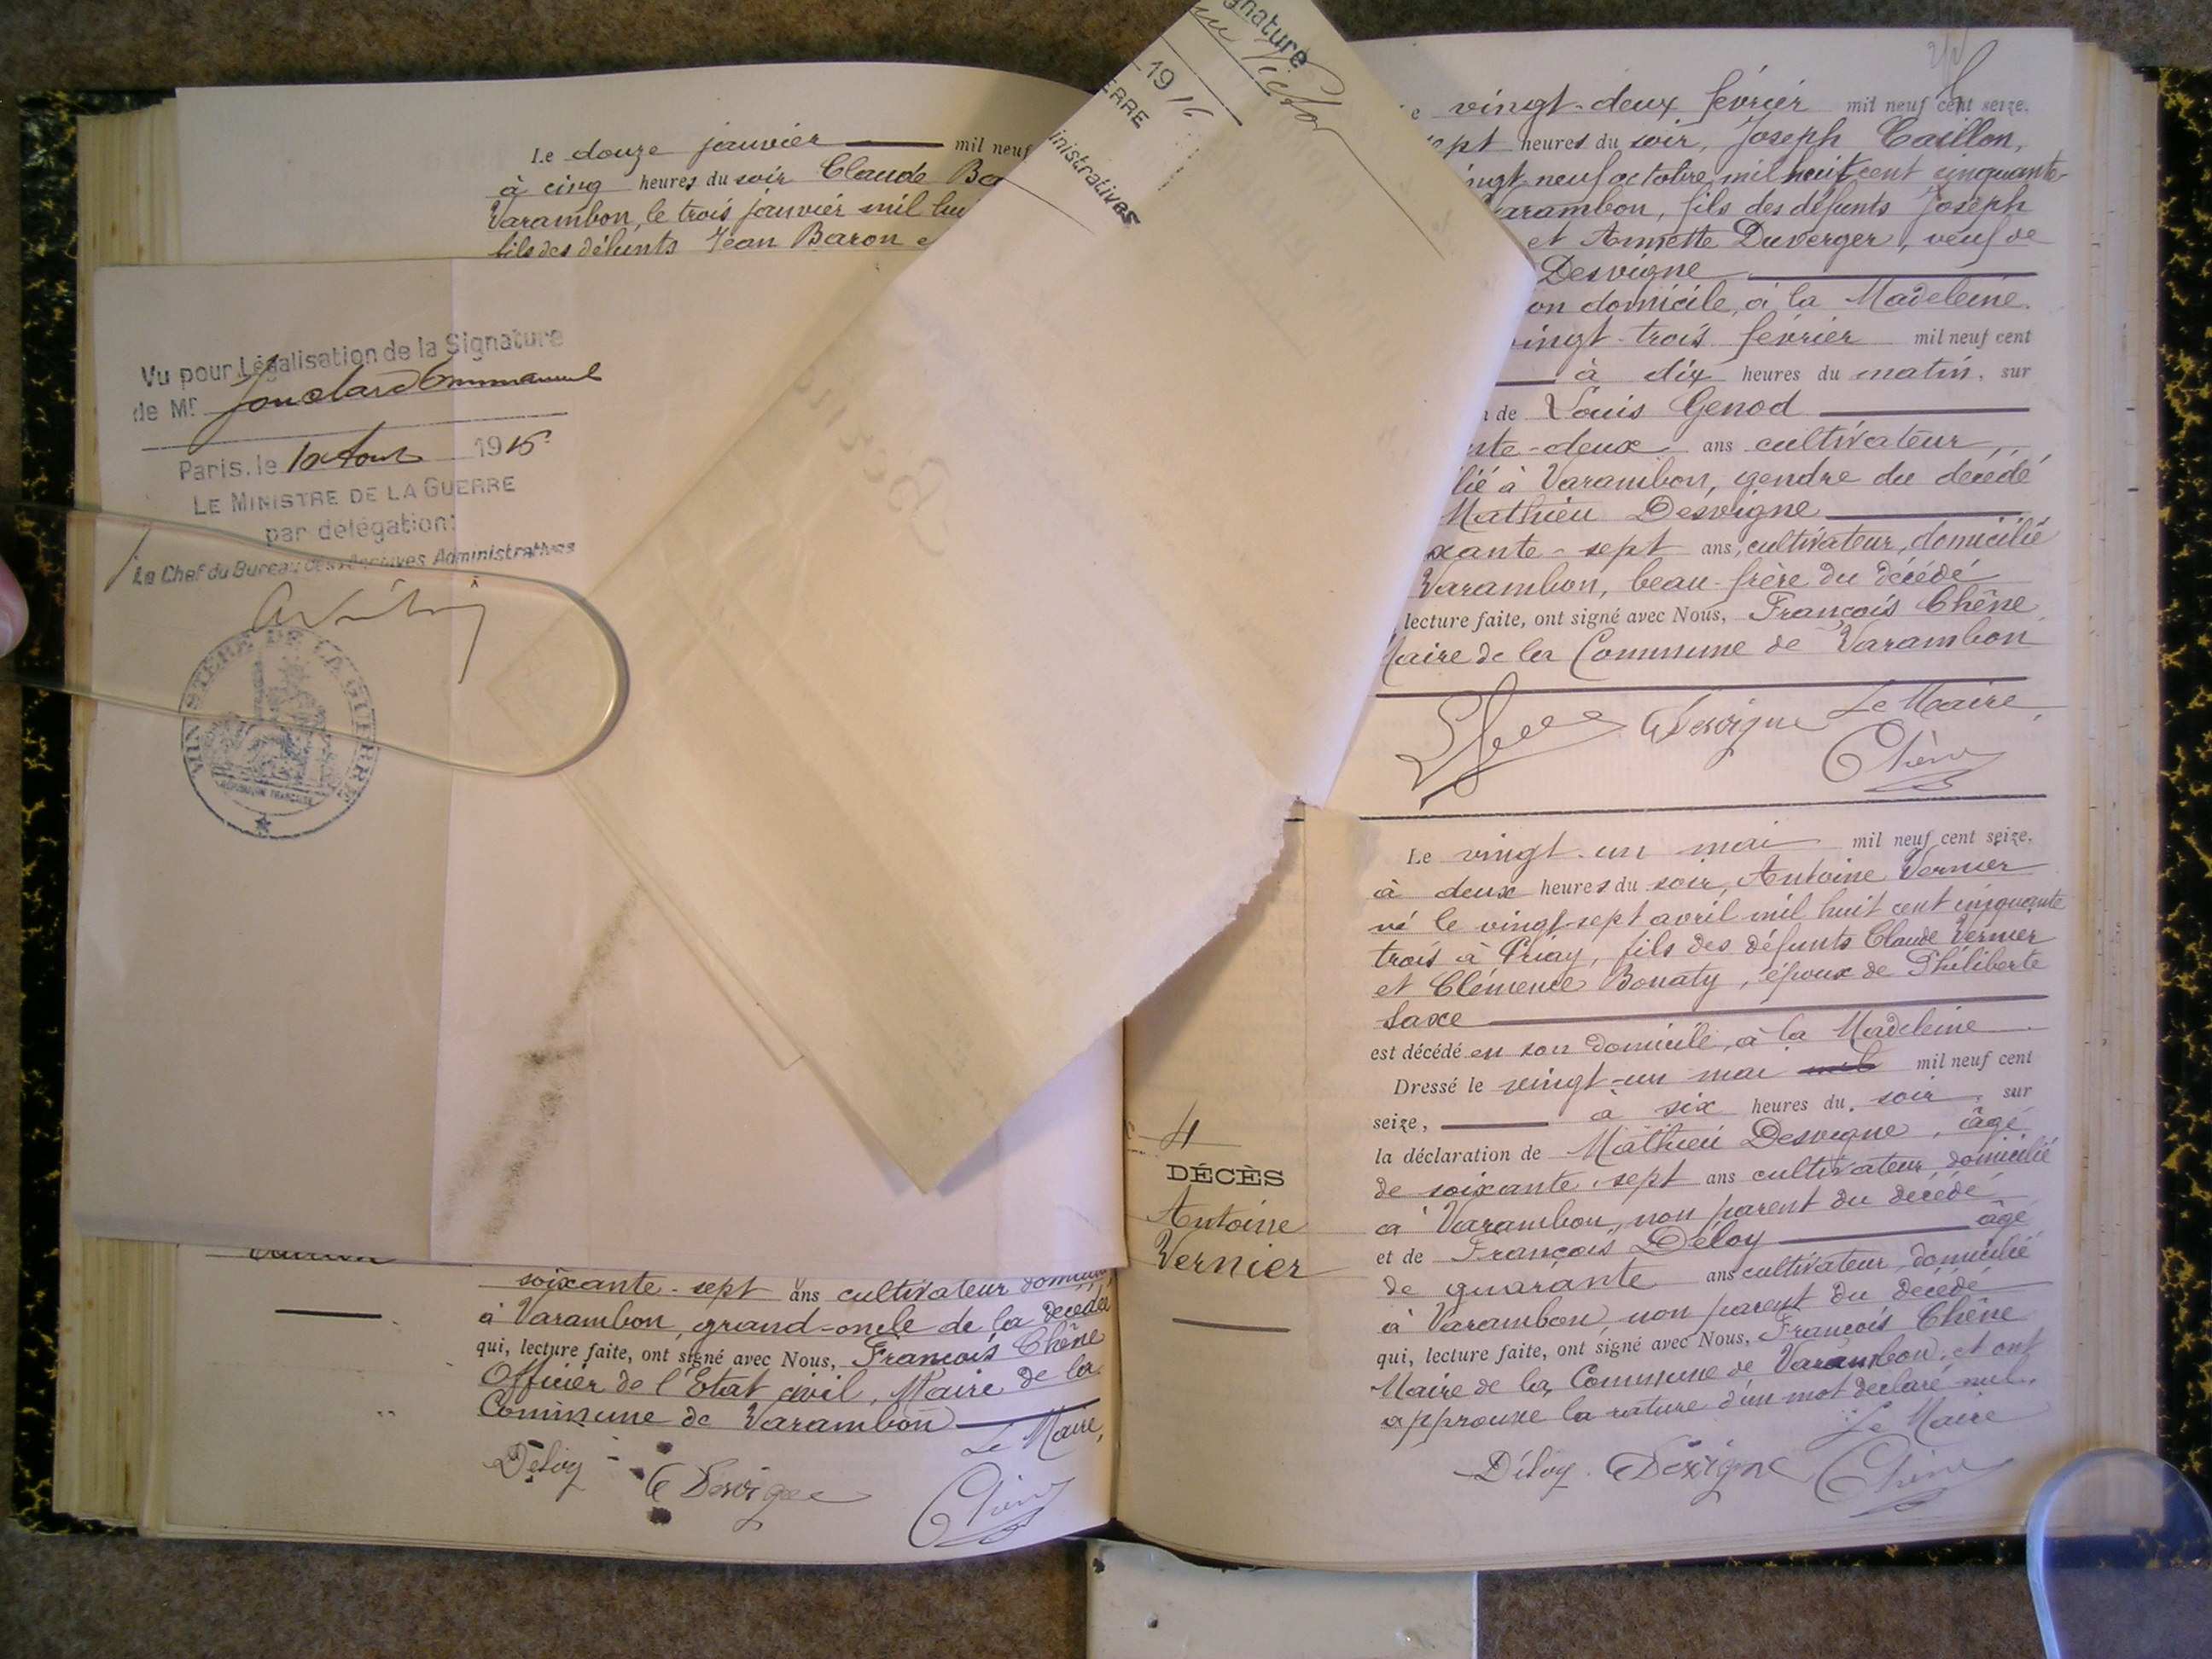 Le douze janvier mil neuf
à cinq heures du soir Claude Ba
Varambon, le trois janvier mil hui
fils des défunts Jean Baron e
Vu pour Légalisation de la Signature
de Mr
Paris, le 1916
LE MINISTRE DE LA GUERRE
par délégation:
Le Chef du Bureau des Archives Administratives
MINISTÈRE DE LA GUERRE
RÉPUBLIQUE FRANÇAISE
gnature
Victor
1916
ERRE
inistratives
soixante-sept ans cultivateur domicilié
à Varambon, grand-oncle de la décédée
qui, lecture faite, ont signé avec Nous, François Chêne
Officier de l'Etat civil, Maire de la
Commune de Varambon
Le Maire,
Déloy Desvigne Chêne
e vingt-deux février mil neuf cent seize.
sept heures du soir, Joseph Caillon,
ingt neuf octobre mil huit cent cinquante-
arambon, fils des défunts Joseph
et Annette Duverger, veuf de
Desvigne
on domicile, à la Madeleine.
vingt-trois février mil neuf cent
à dix heures du matin, sur
n de Louis Genod
nte-deux ans cultivateur,
lié à Varambon, gendre du décédé
Mathieu Desvigne
oixante-sept ans, cultivateur, domicilié
Varambon, beau-frère du décédé
lecture faite, ont signé avec Nous, François Chêne
Maire de la Commune de Varambon
Desvigne Le Maire,
Chêne
4
DÉCÈS
Antoine
Vernier
Le vingt-un mai mil neuf cent seize.
à deux heures du soir, Antoine Vernier
né le vingt-sept avril mil huit cent cinquante
trois à Priay, fils des défunts Claude Vernier
et Clémence Bonaty, époux de Philiberte
Saxe
est décédé en son domicile, à la Madeleine
Dressé le vingt-un mai mil neuf cent
seize, à six heures du soir, sur
la déclaration de Mathieu Desvigne, âgé
de soixante-sept ans cultivateur domicilié
à Varambon, non parent du décédé
et de François Déloy âgé
de quarante ans cultivateur, domicilié
à Varambon, non parent du décédé
qui, lecture faite, ont signé avec Nous, François Chêne
Maire de la Commune de Varambon, et ont
approuve la rature d'un mot déclaré nul.
Le Maire
Déloy. Desvigne Chêne